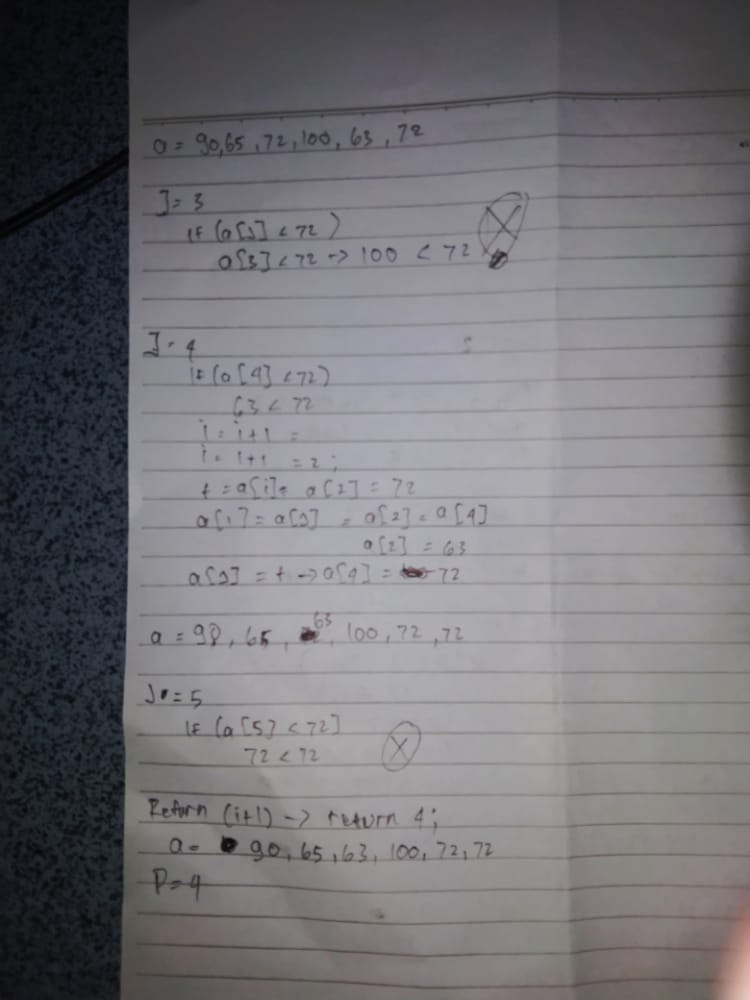 a = 90,65,72,100,63,72
J = 3
if (a[J] < 72)
a[3] < 72 -> 100 < 72
J = 4
if (a[4] < 72)
63 < 72
i = i+1 =
i = 1+1 = 2;
t = a[i] = a[2] = 72
a[i] = a[J] = a[2] = a[4]
a[2] = 63
a[J] = t -> a[4] = 72
a = 90, 65, 63, 100, 72, 72
J = 5
if (a[5] < 72]
72 < 72
Return (i+1) -> return 4;
a = 90, 65, 63, 100, 72, 72
P = 4